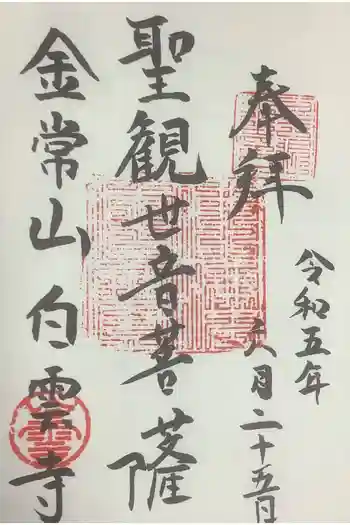 奉拝
令和五年
八月二十五日
聖観世音菩薩
金常山白雲寺